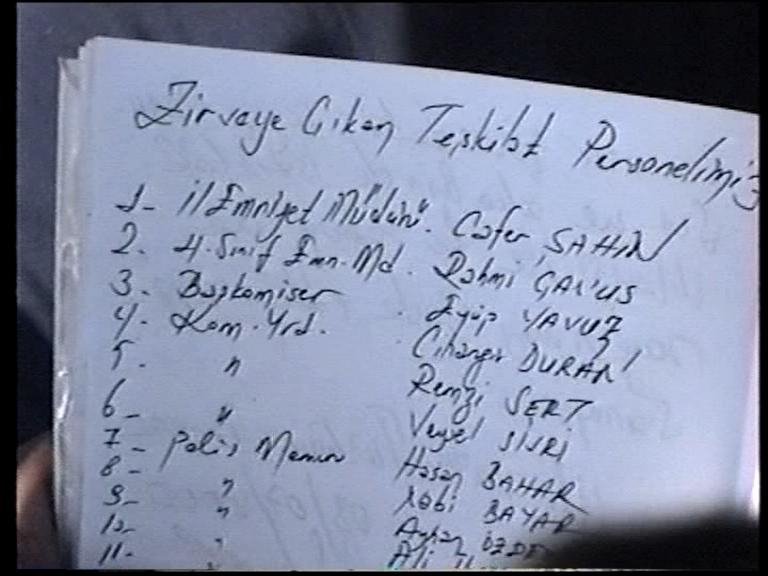 Zirveye Çıkan Teşkilat Personelimiz
1- İl Emniyet Müdürü. Cafer ŞAHİN
2. 4. Sınıf Emn. Md. Rahmi ÇAVUŞ
3. Başkomiser Eyüp YAVUZ
4. Kom. Yrd. Cihangir DURAN
5. " Remzi SERT
6- " Veysel SİVRİ
7- Polis Memuru Hasan BAHAR
8- " BAYAR
9- " Ayhan
10- " Ali
11-